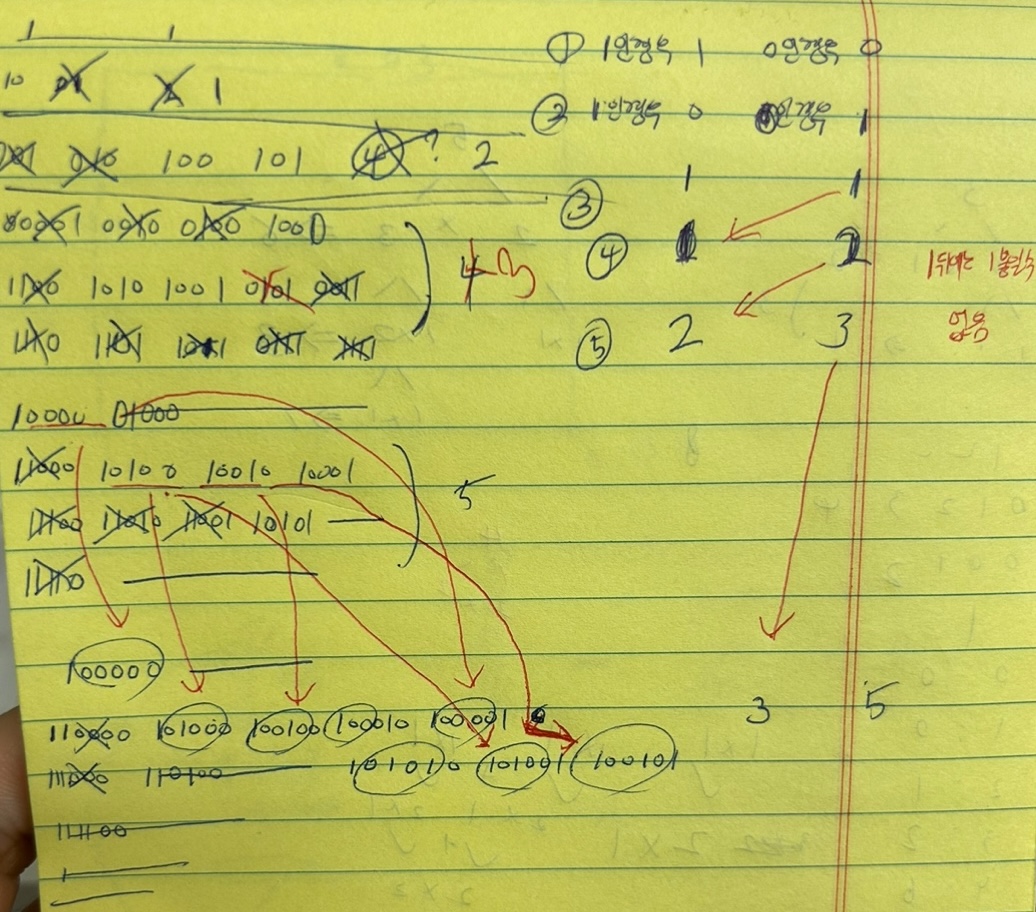 1 1 ① 1인경우 1 0인경우 0
10 01 1 ② 1인경우 0 0인경우 1
001 010 100 101 4? 2 ③ 1 1
0001 0010 0100 1000 ④ 1 2
1100 1010 1001 0101 0011 4 3 1뒤에는 1올 수
없음
1110 1101 1011 0111 1111 ⑤ 2 3
10000 01000
11000 10100 10010 10001 5
11100 11010 11001 10101
11110
100000
110000 101000 100100 100010 100001 3 5
111000 110100 101010 101001 100101
111100
1